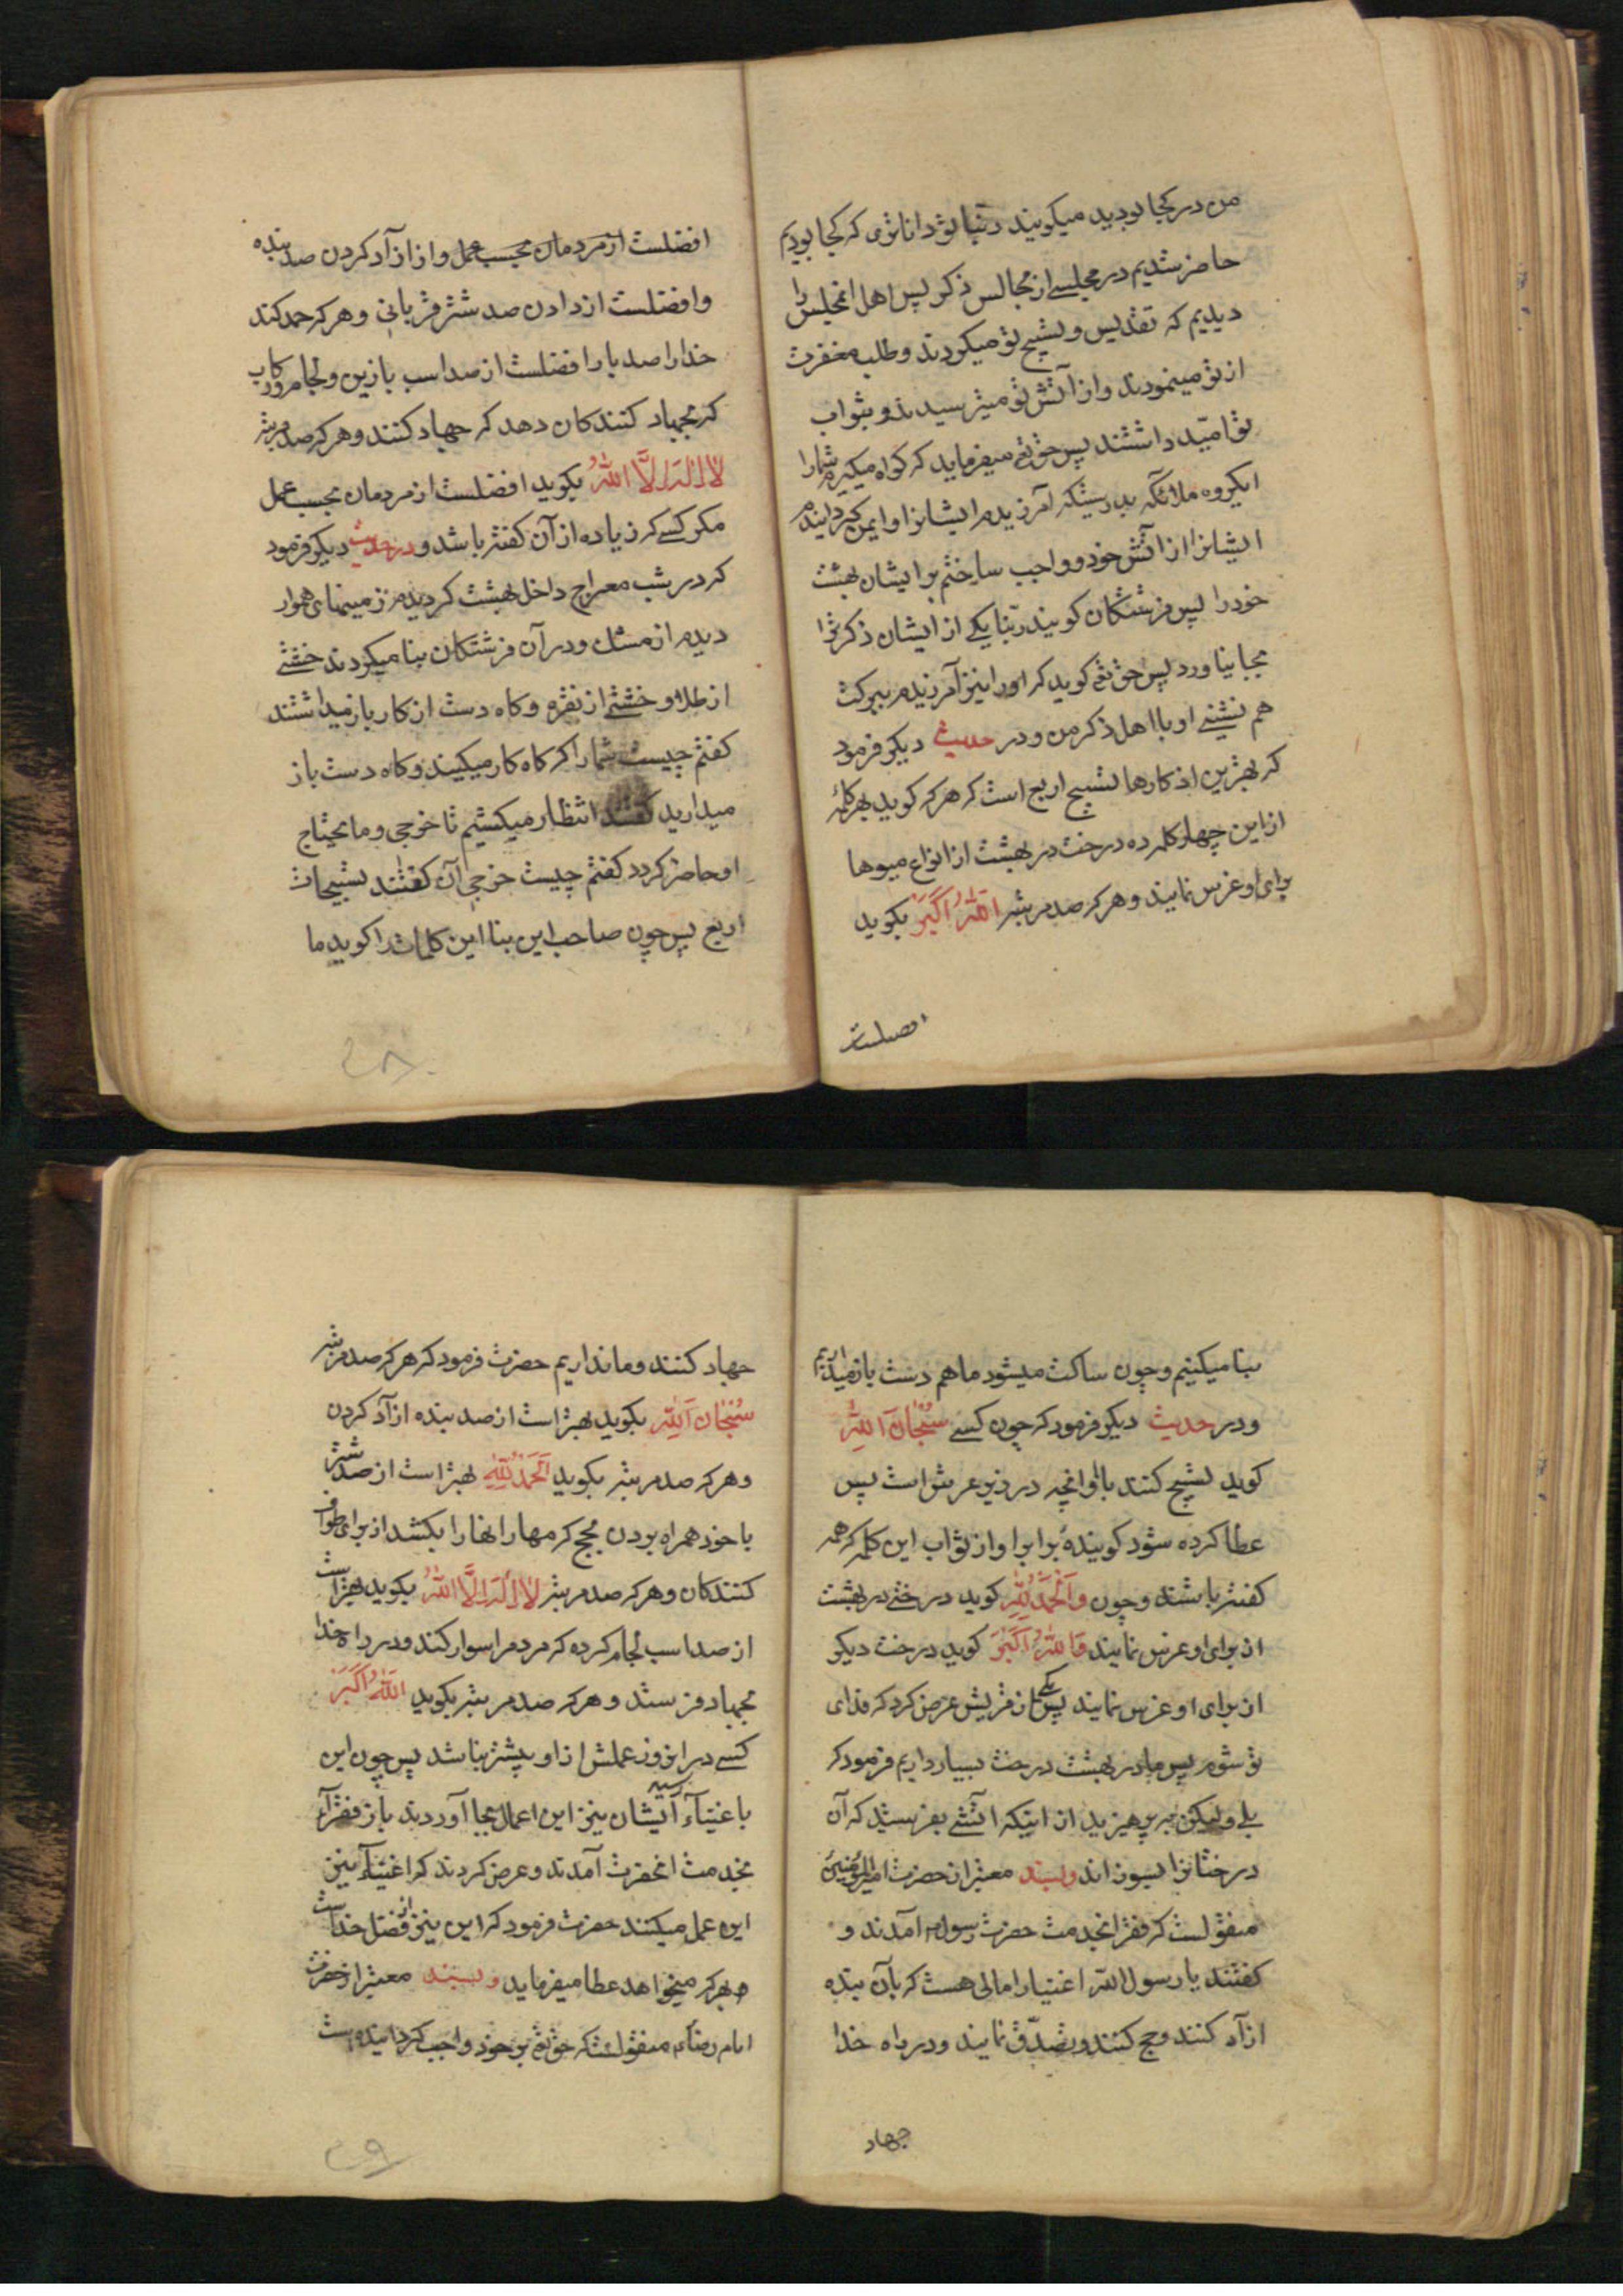 من در کجا بودید میکویند ربّنا تو داناتری که کجا بودیم
حاضر شدیم در مجلسی از مجالس ذکر پس اهل انمجلس را
دیدیم که تقدیس و تسبیح تو میکردند و طلب مغفرت
از تو مینمودند و از آتش تو میترسیدند و بثواب
تو امّید داشتند پس حق تع میفرماید که کواه میکیرم شمارا
ایکروه ملائکه بدرستیکه آمرزیدم ایشانرا و ایمن کردانیدم
ایشانرا از آتش خود و واجب ساختم برایشان بهشت
خود را پس فرشتکان کویند ربّنا یکی از ایشان ذکر ترا
بجا نیاورد پس حق تع کوید که اورا نیز آمرزیدم ببرکت
هم نشینی او با اهل ذکر من و در حدیث دیکر فرمود
که بهترین اذکارها تسبیح اربع است که هر که کوید بهر کلمهٔ
از این چهار کلمه ده درخت در بهشت از انواع میوها
برای او غرس نمایند و هر که صد مرتبه اللّه اکبر بکوید
افضلست
افضلست از مردمان بحسب عمل و از ازآد کردن صد بنده
و افضلست از دادن صد شتر قربانی و هر که حمد کند
خدارا صد بار افضلست از صد اسب بازین و لجام و رکاب
که بجهاد کنندکان دهد که جهاد کنند و هر که صد مرتبه
لا اله الّا اللّه بکوید افضلست از مردمان بحسب عمل
مکر کسی که زیاده از آن کفته باشد و در حدیث دیکر فرمود
که در شب معراج داخل بهشت کردیدم زمینهای هموار
دیدم از مسک و در آن فرشتکان بنا میکردند خشتی
از طلا و خشتی از نقره و کاه دست از کار باز میداشتند
کفتم چیست شمارا که کاه کار میکنید و کاه دست باز
میدارید کفتند انتظار میکشیم تا خرجی و مایحتاج
او حاضر کردد کفتم چیست خرجی آن کفتند تسبیحات
اربع پس چون صاحب این بنا این کلمات را کوید ما
۲۸
بنا میکنیم و چون ساکت میشود ما هم دست باز میداریم
و در حدیث دیکر فرمود که چون کسی سُبْحٰانَ اللّهِ
کوید تسبیح کنند با او آنچه در زیر عرش است پس
عطا کرده شود کویندهٔ برابر او از ثواب این کلمه که همه
کفته باشند و چون و الحمد للّه کوید درختی در بهشت
از برای او غرس نمایند و اللّه اکبر کوید درخت دیکر
از برای او غرس نمایند پس یکی از قریش عرض کرد که فدای
تو شوم پس ما در بهشت درخت بسیار داریم فرمود که
بلی ولیکن بپرهیزید از اینکه آتشی بفرستید که آن
درختانرا بسوزاند و بسند معتبر از حضرت امیرالمؤمنین
منقولست که فقرا بخدمت حضرت رسول آمدند و
کفتند یا رسول اللّه اغنیارا مالی هست که بآن بنده
ازآد کنند و حج کنند و تصدّق نمایند و در راه خدا
جهاد
جهاد کنند و ما نداریم حضرت فرمود که هر که صد مرتبه
سُبْحٰانَ اللّه بکوید بهتر است از صد بنده ازآد کردن
و هر که صد مرتبه بکوید اَلْحَمْدُ لِلّهِ بهتر است از صد شتر
با خود همراه بردن بحج که مهار انهارا بکشد از برای طواف
کنندکان و هر که صد مرتبه لا اله الّا اللّه بکوید بهتر است
از صد اسب لجام کرده که مردم را سوار کند و در راه خدا
بجهاد فرستد و هر که صد مرتبه بکوید اللّه اکبر
کسی در انروز عملش از او بیشتر نباشد پس چون این
باغنیآء رسید ایشان نیز این اعمال بجا آوردند باز فقرآء
بخدمت انحضرت آمدند و عرض کردند که اغنیآء نیز
این عمل میکنند حضرت فرمود که این نیز از فضل خداست
و بهر که میخواهد عطا میفرماید و بسند معتبر از حضرت
امام رضا منقولست که حق تع بر خود واجب کردانیده است
۲۹